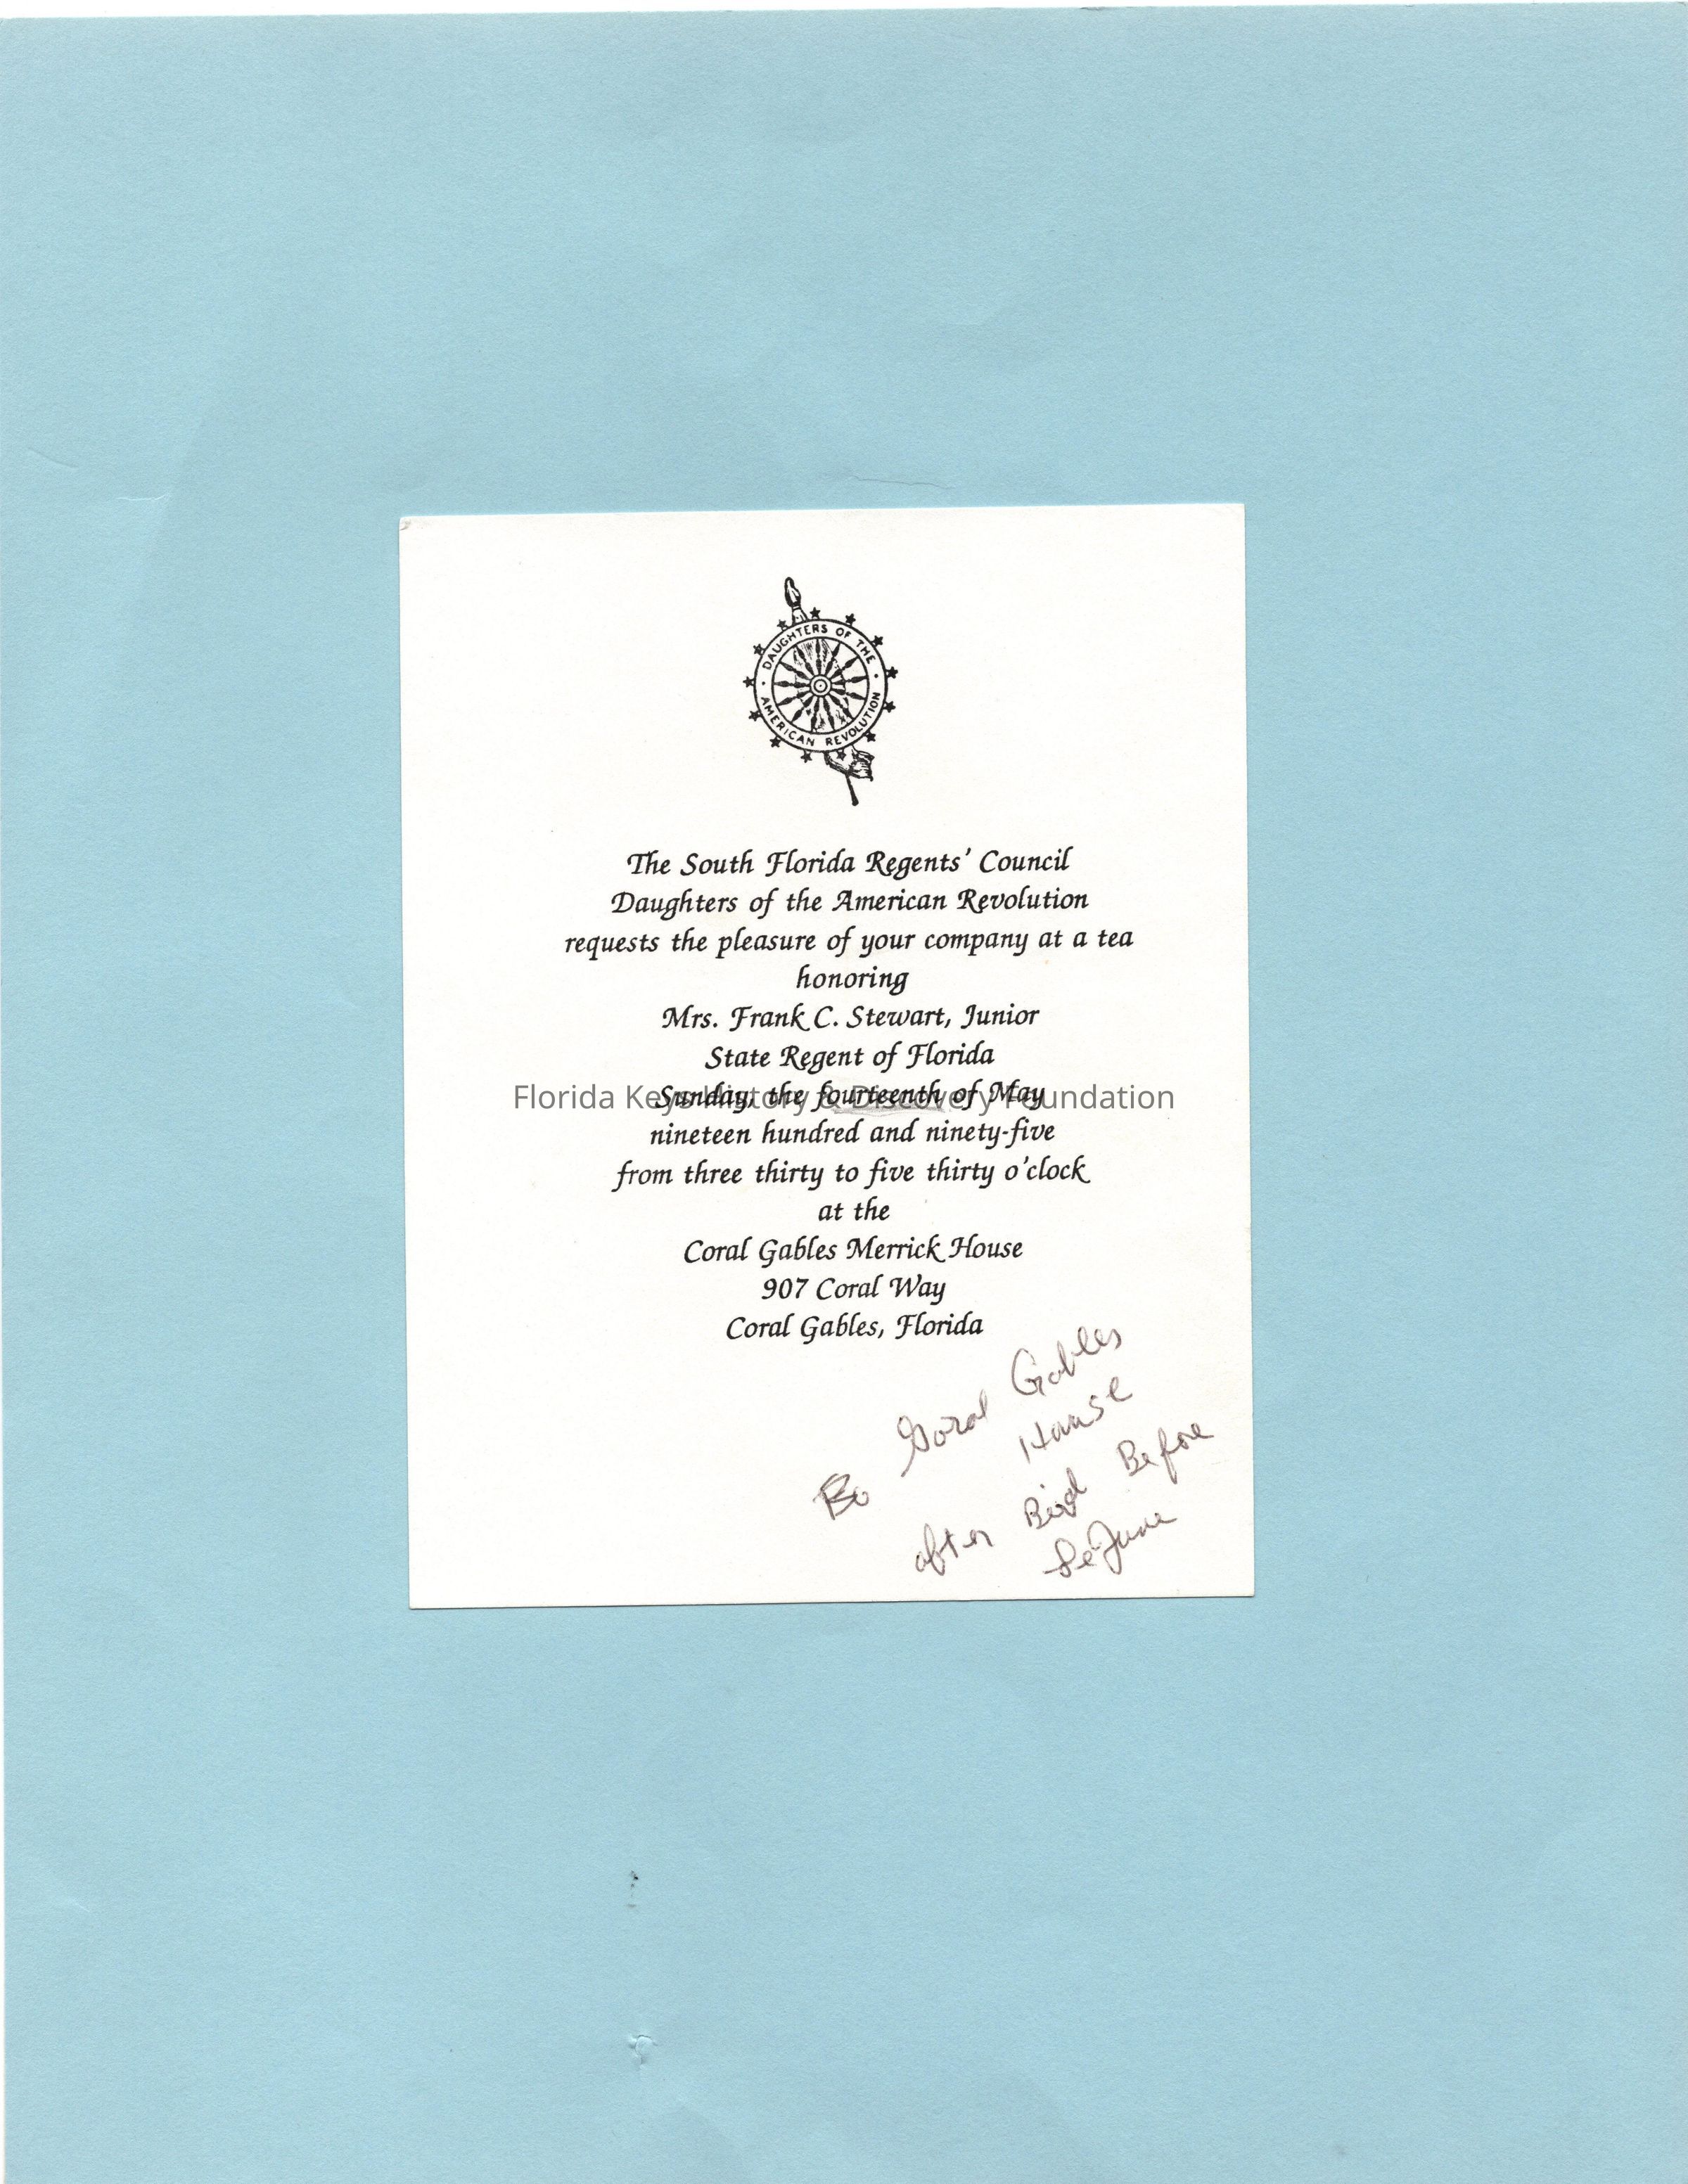 DAUGHTERS OF THE
AMERICAN REVOLUTION
The South Florida Regents' Council
Daughters of the American Revolution
requests the pleasure of your company at a tea
honoring
Mrs. Frank C. Stewart, Junior
State Regent of Florida
Sunday, the fourteenth of May
Florida Keys History & Discovery Foundation
nineteen hundred and ninety-five
from three thirty to five thirty o'clock
at the
Coral Gables Merrick House
907 Coral Way
Coral Gables, Florida
Coral Gables
House
after Bird Before
LeJune